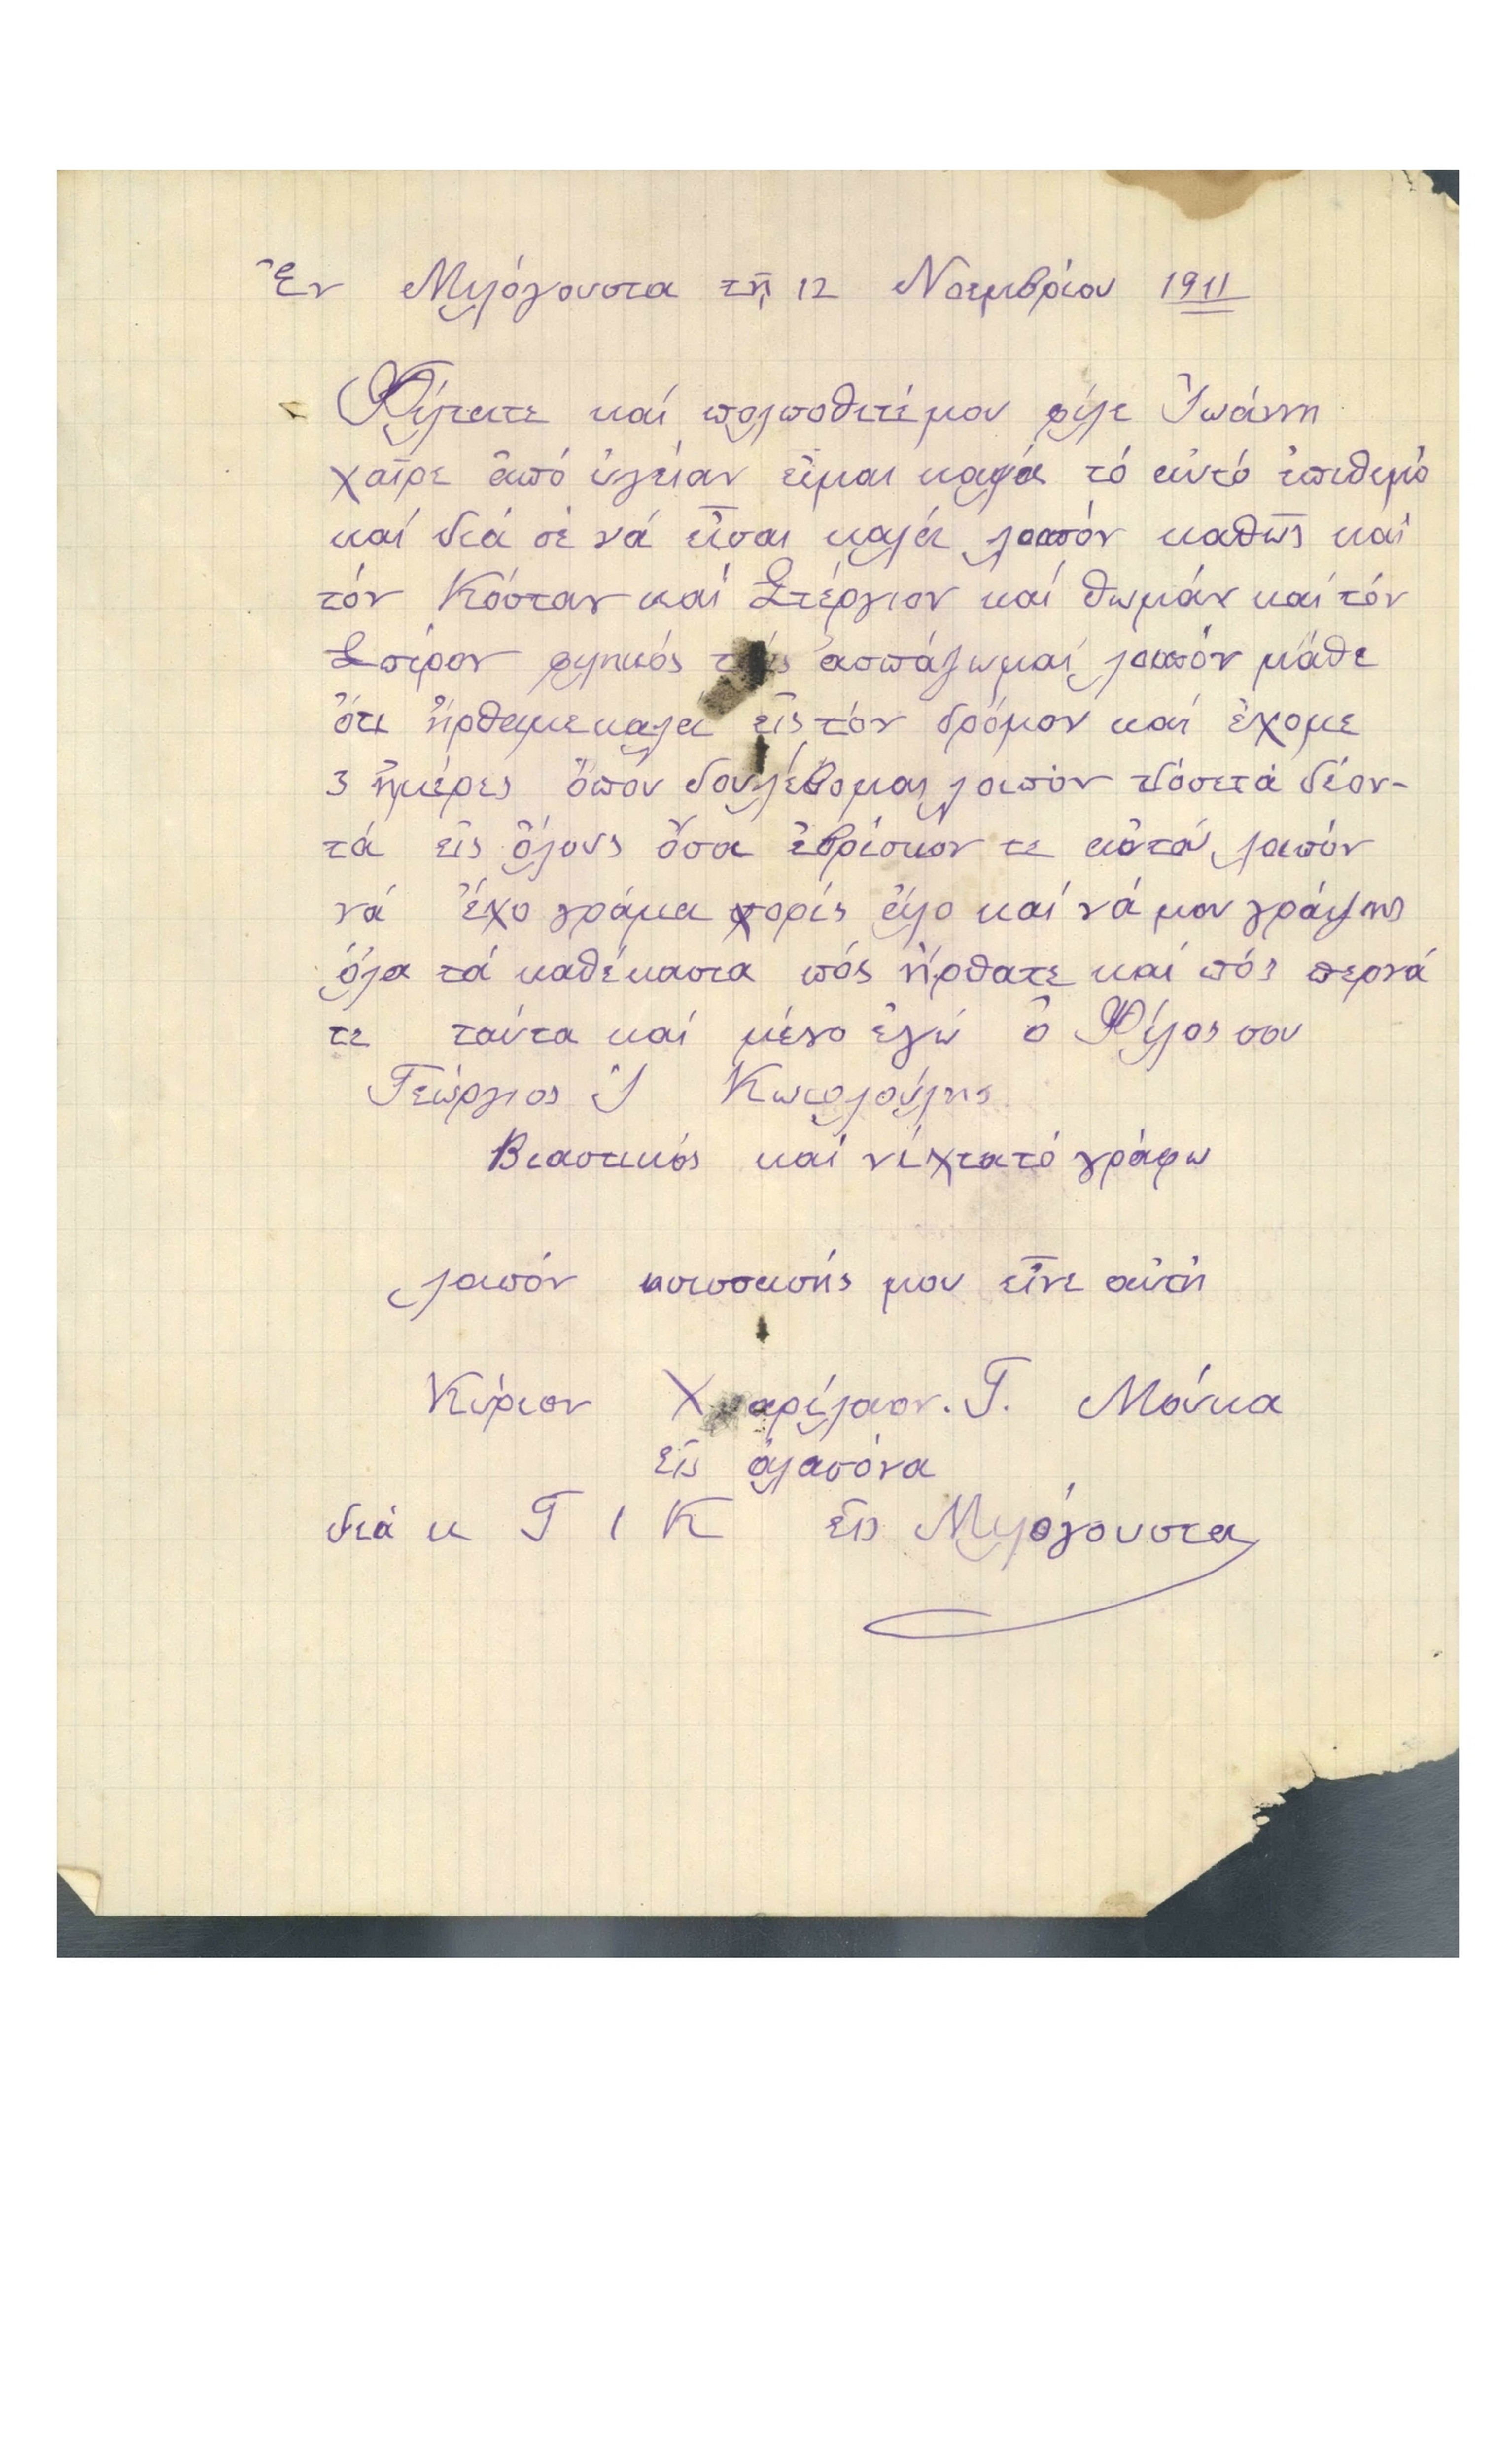 Ἐν Μιλόγουστα τῇ 12 Νοεμβρίου 1911
Φίλτατε καί πολποθιτέ μου φίλε Ἰωάννη
χαῖρε ἀπό ὑγείαν εἶμαι καλά τό αὐτό ἐπιθιμό
καί διά σέ νά εἶσαι καλά λοιπόν καθῶς καί
τόν Κόσταν καί Στέργιον καί Θωμάν καί τόν
Σπίρον φιλικός τούς ἀσπάζωμαί λοιπόν μάθε
ὅτι ἤρθαμε καλά εἰς τόν δρόμον καί ἔχομε
3 ἡμέρες ὅπου δουλέβομαι λοιπόν δόσετά δέον-
τά εἰς ὅλους ὅσα ἐβρίσκον τε αὐτά λοιπόν
νά ἔχο γράμα χορίς ἄλο καί νά μου γράψης
ὅλα τά καθέκαστα πός ἤρθατε καί πός περνά
τε ταύτα καί μένο ἐγώ ὁ Φίλος σου
Γεώργιος Ἰ
Βιαστικός καί νίχτα τό γράφω
λοιπόν μου εἶνε αὐτή
Κύριον Χαρίλαον. Γ. Μάνκα
Εἰς ὀλασόνα
διά κ Γ Ι Κ εἰς Μιλόγουστα